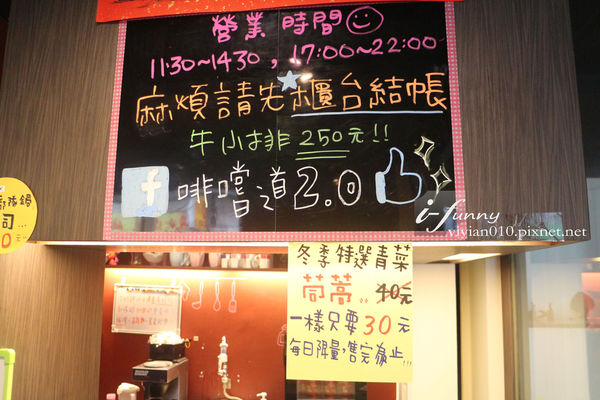 營業時間
11:30~1430, 17:00~22:00
麻煩請先櫃台結帳
牛小排 250元!!
f 啡嚐道2.0
i-funny
vivian010.pixnet.net
冬季特選青菜
茼蒿.. 40元
一樣只要30元
每日限量,售完為止...